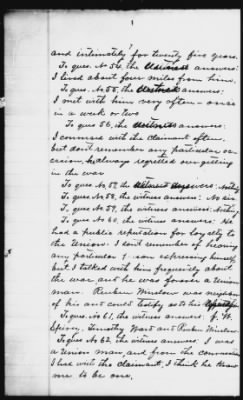 1
and intimately for twenty five years.
To ques. No 54, the witness answers:
I lived about four miles from him.
To ques. No. 55, the witness answers:
I met with him very often - once
in a week or two
To ques 56, the witness answers:
I conversed with the claimant often,
but don't remember any particular oc-
casion, he always regretted our getting
in the war
To ques. No 57 the witness answers: Nothing
To ques. No 58, the witness answers: No sir
To ques. No 59, the witness answers: Nothing
To ques. No 60, the witness answers: He
had a public reputation for loyalty to
the Union. I don't remember of hearing
any particular person expressing himself,
but I talked with him frequently about
the war and he was forever a Union
man. Reuben Winslow was
of his and could testify as to his
To ques. No 61, the witness answers: J. W.
Spivey, Timothy Ward and Reuben Winslow
To ques No 62, the witness answers: I was
a Union man, and from the conversations
I had with the claimant, I think he knew
me to be one.